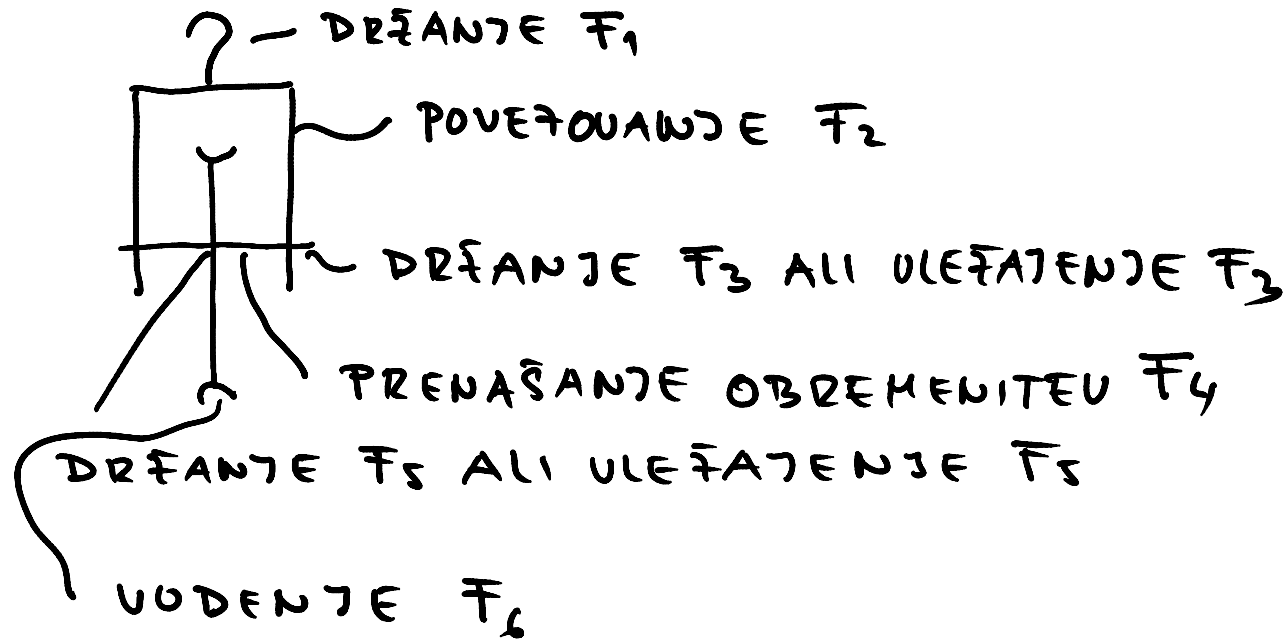 DRŽANJE F1
POVEZOVANJE F2
DRŽANJE F3 ALI ULEŽAJENJE F3
PRENAŠANJE OBREMENITEV F4
DRŽANJE F5 ALI ULEŽAJENJE F5
VODENJE F6